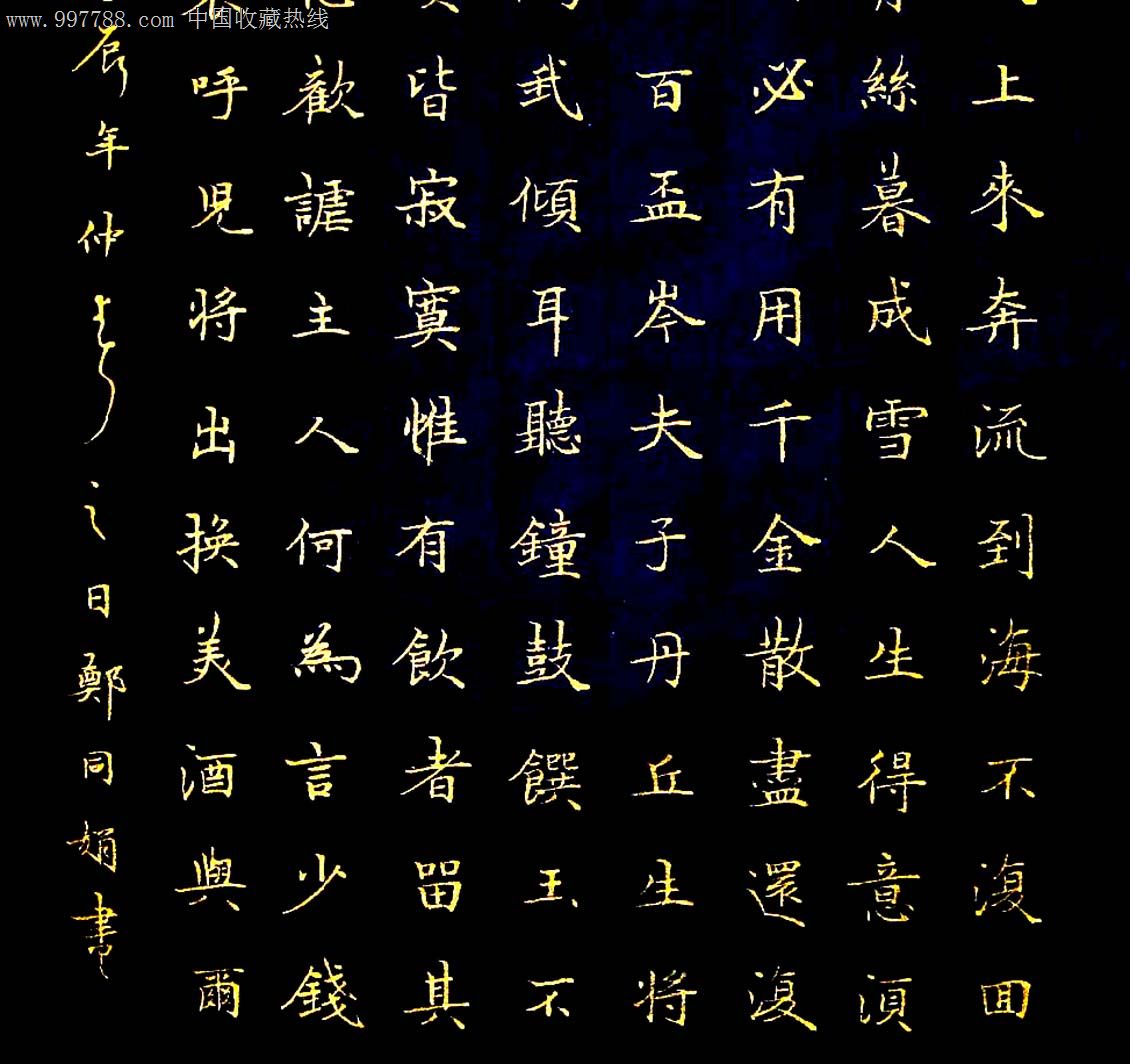 www.997788.com 中国收藏热线
上來奔流到海不復囬
絲暮成雪人生得意須
必有用千金散盡還復
百盃岑夫子丹丘生将
我傾耳聽鐘鼓饌玉不
皆寂寞惟有飲者留其
歡謔主人何為言少錢
呼児将出換美酒與爾
辰年仲春之日鄭同娟書